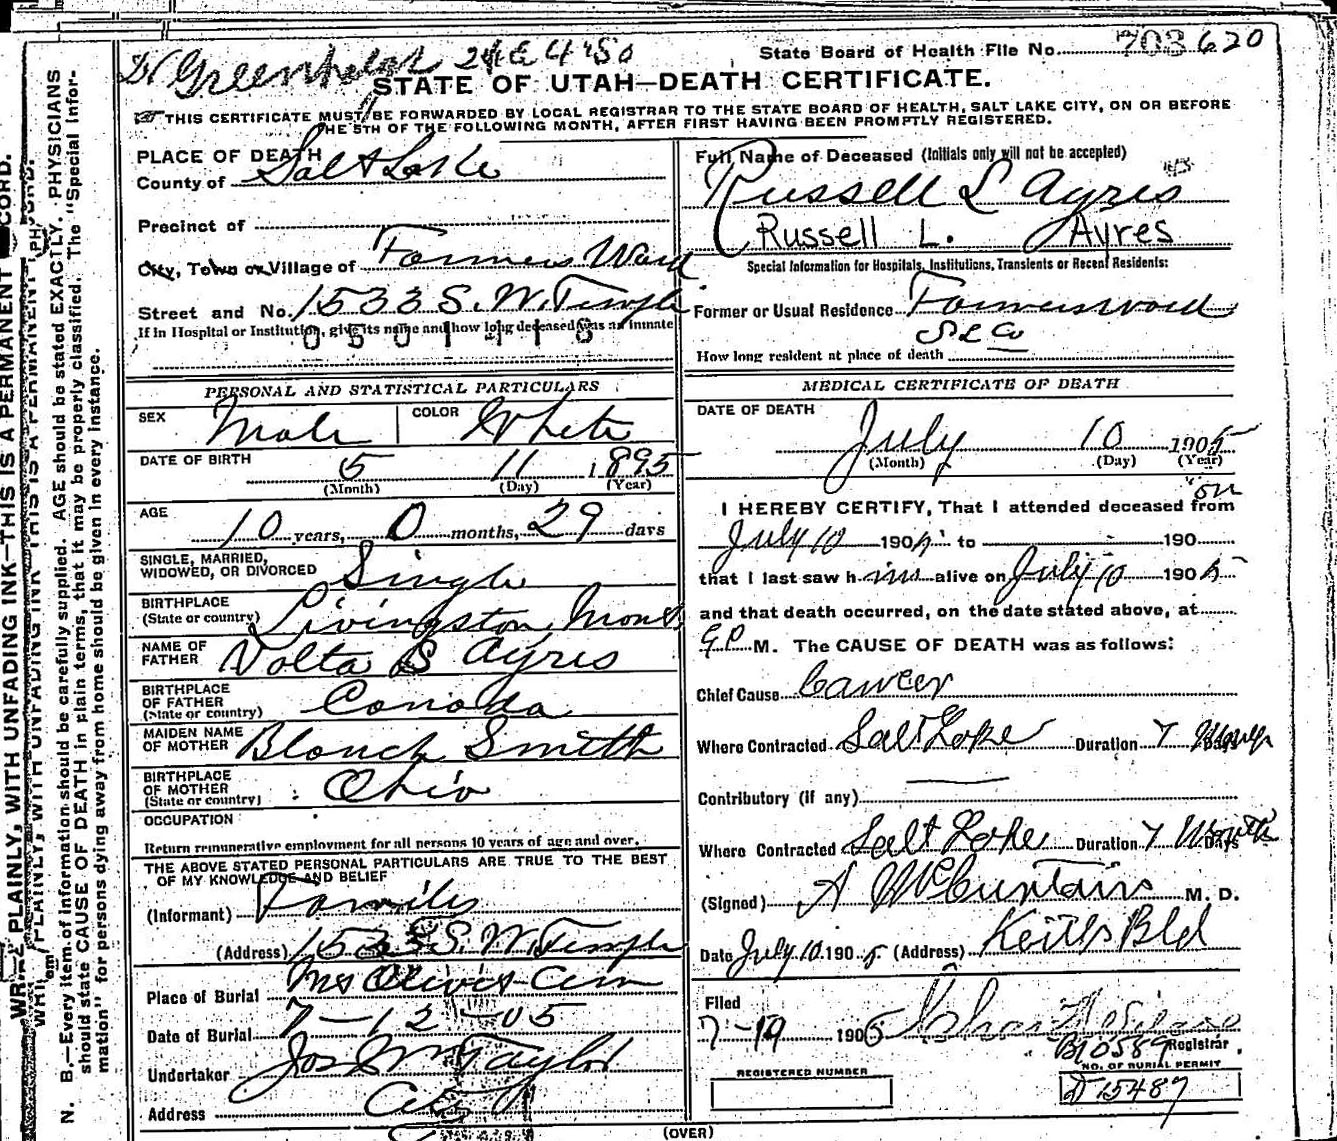 State Board of Health File No. 703 620
Dr Greenhalgh
STATE OF UTAH—DEATH CERTIFICATE.
THIS CERTIFICATE MUST BE FORWARDED BY LOCAL REGISTRAR TO THE STATE BOARD OF HEALTH, SALT LAKE CITY, ON OR BEFORE
THE 5TH OF THE FOLLOWING MONTH, AFTER FIRST HAVING BEEN PROMPTLY REGISTERED.
PLACE OF DEATH
County of Salt Lake
Precinct of
City, Town or Village of Farmers Ward
Street and No. 1533 S. W. Temple
If in Hospital or Institution, give its name and how long deceased was an inmate
0501418
Full Name of Deceased (Initials only will not be accepted)
Russell L Ayres
Russell L. Ayres
Special Information for Hospitals, Institutions, Transients or Recent Residents:
Former or Usual Residence Farmers Ward
S L Co
How long resident at place of death
PERSONAL AND STATISTICAL PARTICULARS
SEX Male COLOR White
DATE OF BIRTH 5 11 1895
(Month) (Day) (Year)
AGE
10 years, 0 months, 29 days
SINGLE, MARRIED,
WIDOWED, OR DIVORCED Single
BIRTHPLACE
(State or country) Livingston Mont
NAME OF
FATHER Volta S Ayres
BIRTHPLACE
OF FATHER
(State or country) Canada
MAIDEN NAME
OF MOTHER Blanch Smith
BIRTHPLACE
OF MOTHER
(State or country) Ohio
OCCUPATION
Return remunerative employment for all persons 10 years of age and over.
THE ABOVE STATED PERSONAL PARTICULARS ARE TRUE TO THE BEST
OF MY KNOWLEDGE AND BELIEF
(Informant) Family
(Address) 1533 S. W. Temple
Place of Burial Mt Olivet Cem
Date of Burial 7-12-05
Undertaker Jos Wm Taylor
Address City
MEDICAL CERTIFICATE OF DEATH
DATE OF DEATH
July 10 1905
(Month) (Day) (Year)
I HEREBY CERTIFY, That I attended deceased from on
July 10 1905 to 190
that I last saw h im alive on July 10 1905
and that death occurred, on the date stated above, at
9 P. M. The CAUSE OF DEATH was as follows:
Chief Cause Cancer
Where Contracted Salt Lake Duration 7 Months
Contributory (if any)
Where Contracted Salt Lake Duration 7 Months Days
(Signed) M. D.
Date July 10 1905 (Address) Keith Bld
Filed
7-19 1905
Registrar
B10589
NO. OF BURIAL PERMIT
REGISTERED NUMBER
D 15487
(OVER)
N. B.—Every item of information should be carefully supplied. AGE should be stated EXACTLY. PHYSICIANS
should state CAUSE OF DEATH in plain terms, that it may be properly classified. The "Special Infor-
mation" for persons dying away from home should be given in every instance.
PLAINLY, WITH UNFADING INK—THIS IS A PERMANENT